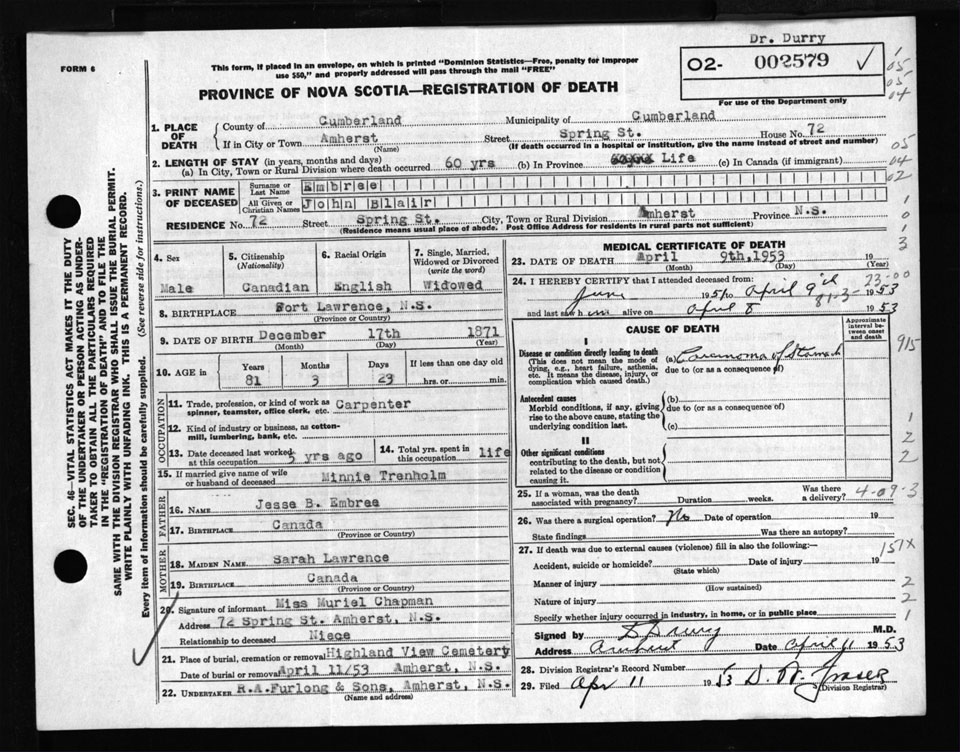 Dr. Durry
FORM 6
This form, if placed in an envelope, on which is printed "Dominion Statistics—Free, penalty for improper
use $50," and properly addressed will pass through the mail "FREE"
02- 002579 ✓
For use of the Department only
PROVINCE OF NOVA SCOTIA—REGISTRATION OF DEATH
1. PLACE OF DEATH
County of Cumberland Municipality of Cumberland
If in City or Town Amherst Street Spring St. House No. 72
(Name) (If death occurred in a hospital or institution, give the name instead of street and number)
2. LENGTH OF STAY (in years, months and days)
(a) In City, Town or Rural Division where death occurred 60 yrs (b) In Province Life (c) In Canada (if immigrant)
3. PRINT NAME OF DECEASED
Surname or Last Name Embree
All Given or Christian Names John Blair
RESIDENCE No. 72 Street Spring St. City, Town or Rural Division Amherst Province N.S.
(Residence means usual place of abode. Post Office Address for residents in rural parts not sufficient)
4. Sex Male
5. Citizenship (Nationality) Canadian
6. Racial Origin English
7. Single, Married, Widowed or Divorced (write the word) Widowed
8. BIRTHPLACE Fort Lawrence, N.S.
(Province or Country)
9. DATE OF BIRTH December 17th 1871
(Month) (Day) (Year)
10. AGE in Years 81 Months 3 Days 23 If less than one day old hrs. or min.
OCCUPATION
11. Trade, profession, or kind of work as spinner, teamster, office clerk, etc. Carpenter
12. Kind of industry or business, as cotton-mill, lumbering, bank, etc.
13. Date deceased last worked at this occupation 5 yrs ago
14. Total yrs. spent in this occupation life
15. If married give name of wife or husband of deceased Minnie Trenholm
FATHER
16. NAME Jesse B. Embree
17. BIRTHPLACE Canada
(Province or Country)
MOTHER
18. MAIDEN NAME Sarah Lawrence
19. BIRTHPLACE Canada
(Province or Country)
20. Signature of informant Miss Muriel Chapman
Address 72 Spring St. Amherst, N.S.
Relationship to deceased Niece
21. Place of burial, cremation or removal Highland View Cemetery
Date of burial or removal April 11/53 Amherst, N.S.
22. UNDERTAKER R.A.Furlong & Sons, Amherst, N.S.
(Name and address)
MEDICAL CERTIFICATE OF DEATH
23. DATE OF DEATH April 9th,1953 19
(Month) (Day) (Year)
24. I HEREBY CERTIFY that I attended deceased from:
June 1951 to April 9th 1953
and last saw him alive on April 8 1953
CAUSE OF DEATH
Approximate interval between onset and death
I
Disease or condition directly leading to death
(This does not mean the mode of dying, e.g., heart failure, asthenia, etc. It means the disease, injury, or complication which caused death.)
(a) Carcinoma of Stomach
due to (or as a consequence of)
Antecedent causes
Morbid conditions, if any, giving rise to the above cause, stating the underlying condition last.
(b)
due to (or as a consequence of)
(c)
II
Other significant conditions
contributing to the death, but not related to the disease or condition causing it.
25. If a woman, was the death associated with pregnancy? Duration weeks. Was there a delivery?
26. Was there a surgical operation? No Date of operation 19
State findings Was there an autopsy?
27. If death was due to external causes (violence) fill in also the following:—
Accident, suicide or homicide? Date of injury 19
(State which)
Manner of injury
(How sustained)
Nature of injury
Specify whether injury occurred in industry, in home, or in public place
Signed by D Drury M.D.
Address Amherst Date April 11 1953
28. Division Registrar's Record Number
29. Filed Apr 11 1953 D. M. Fraser
(Division Registrar)
SEC. 46—VITAL STATISTICS ACT MAKES IT THE DUTY
OF THE UNDERTAKER OR PERSON ACTING AS UNDER-
TAKER TO OBTAIN ALL THE PARTICULARS REQUIRED
IN THE "REGISTRATION OF DEATH" AND TO FILE THE
SAME WITH THE DIVISION REGISTRAR WHO SHALL ISSUE THE BURIAL PERMIT.
WRITE PLAINLY WITH UNFADING INK. THIS IS A PERMANENT RECORD.
Every item of information should be carefully supplied. (See reverse side for instructions.)
1
05
05
04
05
04
02
1
0
1
3
23-00
81-3
915
1
2
2
4-09-3
151X
2
2
1